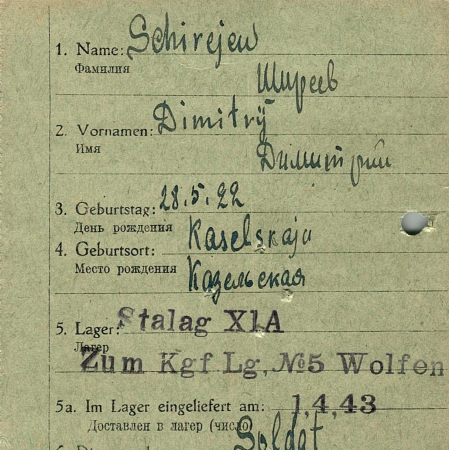 1. Name: Schirejew
Фамилия
Ширеев
2. Vornamen: Dimitrÿ
Имя
Димитрий
3. Geburtstag: 28.5.22
День рождения
4. Geburtsort: Kaselskaja
Место рождения Казельская
5. Lager: Stalag XIA
Лагерь
Zum Kgf Lg, №5 Wolfen
5a. Im Lager eingeliefert am: 1,4,43
Доставлен в лагерь (число)
Soldat